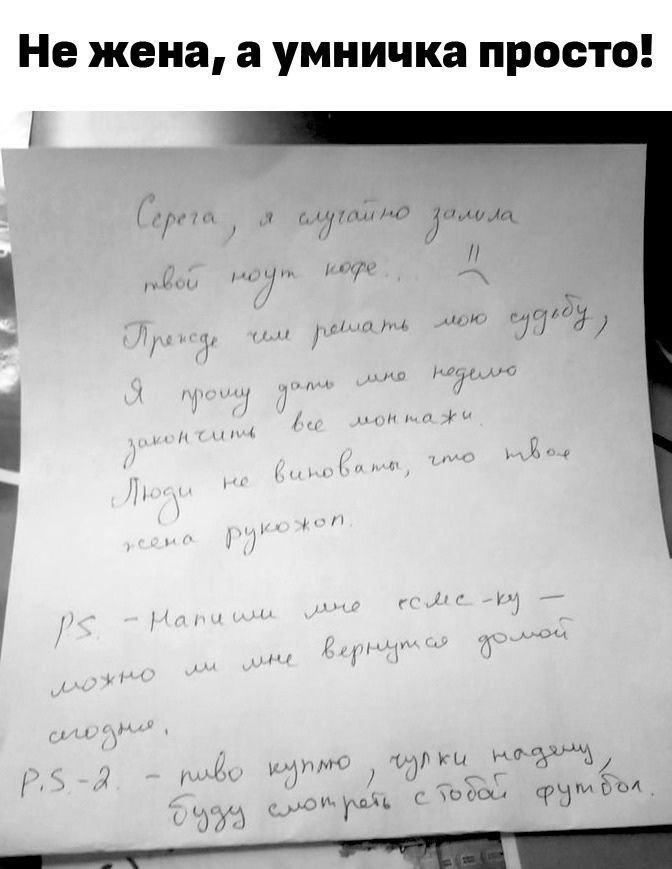 Не жена, а умничка просто!
Серега, я случайно залила
твой ноут кофе...
Прежде чем решать мою судьбу,
Я прошу дать мне неделю
закончить все монтажи.
Люди не виноваты, что твоя
жена рукожоп.
P.S. - Напиши мне эсмс-ку -
можно ли мне вернутся домой
сегодня.
P.S.-2. - пиво куплю, чулки надену,
буду смотреть с тобой футбол.